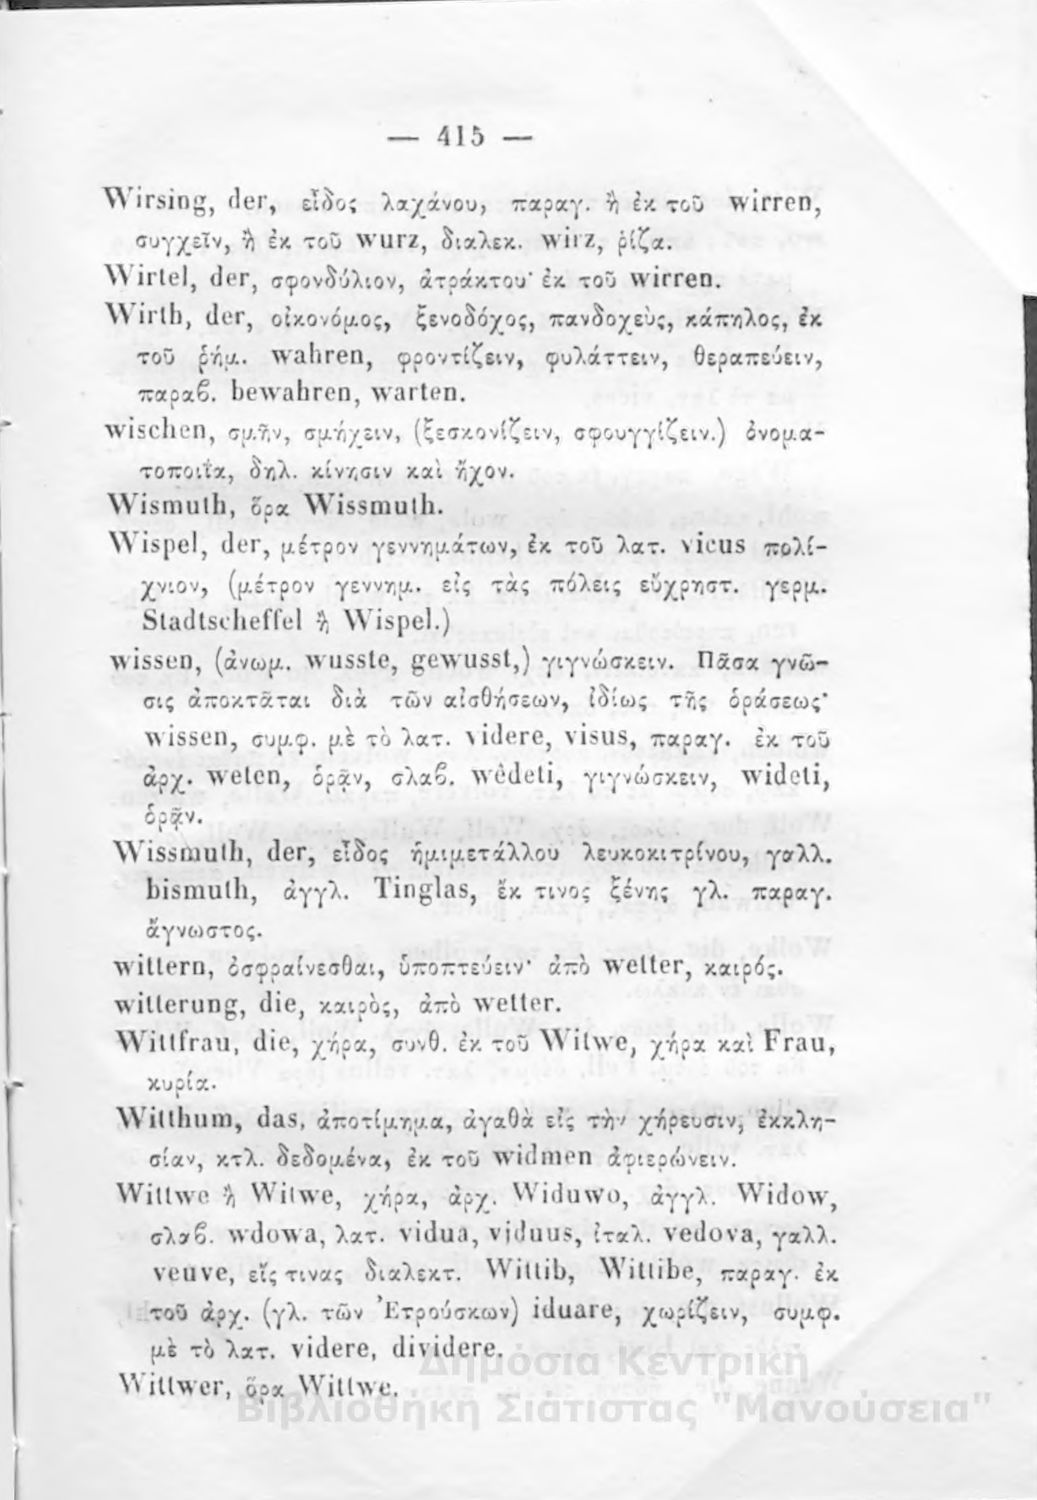 — 415 —
Wirsing, der, εἶδος λαχάνου, παραγ. ἢ ἐκ τοῦ wirren,
συγχεῖν, ἢ ἐκ τοῦ wurz, διαλεκ. wirz, ῥίζα.
Wirtel, der, σφονδύλιον, ἀτράκτου· ἐκ τοῦ wirren.
Wirth, der, οἰκονόμος, ξενοδόχος, πανδοχεὺς, κάπηλος, ἐκ
τοῦ ῥήμ. wahren, φροντίζειν, φυλάττειν, θεραπεύειν,
παραβ. bewahren, warten.
wischen, σμῆν, σμήχειν, (ξεσκονίζειν, σφουγγίζειν.) ὀνομα-
τοποιΐα, δηλ. κίνησιν καὶ ἦχον.
Wismuth, ὅρα Wissmuth.
Wispel, der, μέτρον γεννημάτων, ἐκ τοῦ λατ. vicus πολί-
χνιον, (μέτρον γεννημ. εἰς τὰς πόλεις εὔχρηστ. γερμ.
Stadtscheffel ἢ Wispel.)
wissen, (ἀνωμ. wusste, gewusst,) γιγνώσκειν. Πᾶσα γνῶ-
σις ἀποκτᾶται διὰ τῶν αἰσθήσεων, ἰδίως τῆς ὁράσεως·
wissen, συμφ. μὲ τὸ λατ. videre, visus, παραγ. ἐκ τοῦ
ἀρχ. weten, ὁρᾷν, σλαβ. wèdeti, γιγνώσκειν, wideti,
ὁρᾷν.
Wissmuth, der, εἶδος ἡμιμετάλλου λευκοκιτρίνου, γαλλ.
bismuth, ἀγγλ. Tinglas, ἔκ τινος ξένης γλ. παραγ.
ἄγνωστος.
wittern, ὀσφραίνεσθαι, ὑποπτεύειν· ἀπὸ wetter, καιρός.
witterung, die, καιρὸς, ἀπὸ wetter.
Wittfrau, die, χήρα, συνθ. ἐκ τοῦ Witwe, χήρα καὶ Frau,
κυρία.
Witthum, das, ἀποτίμημα, ἀγαθὰ εἰς τὴν χήρευσιν, ἐκκλη-
σίαν, κτλ. δεδομένα, ἐκ τοῦ widmen ἀφιερώνειν.
Wittwe ἢ Witwe, χήρα, ἀρχ. Widuwo, ἀγγλ. Widow,
σλαβ. wdowa, λατ. vidua, viduus, ἰταλ. vedova, γαλλ.
veuve, εἴς τινας διαλεκτ. Wittib, Wittibe, παραγ. ἐκ
τοῦ ἀρχ. (γλ. τῶν Ἐτρούσκων) iduare, χωρίζειν, συμφ.
μὲ τὸ λατ. videre, dividere.
Wittwer, ὅρα Wittwe.
Δημόσια Κεντρική
Βιβλιοθήκη Σιάτιστας "Μανούσεια"